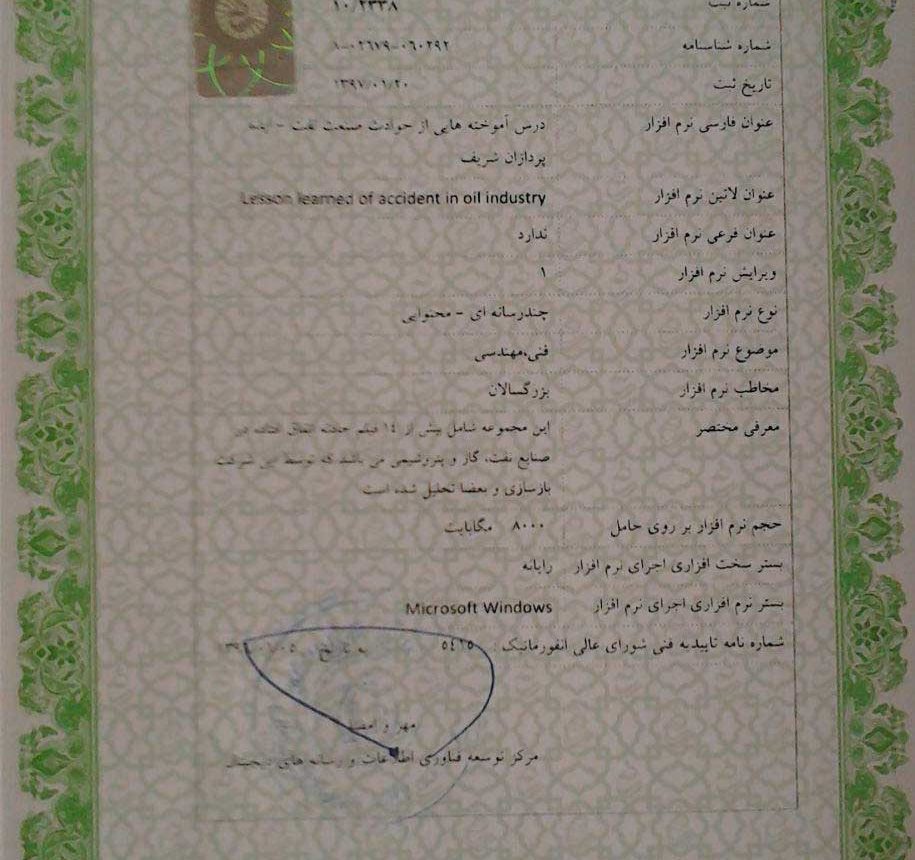 شماره ثبت ۱۰/۲۳۳۸
شماره شناسنامه ۱-۰۲۶۷۹-۰۶۰۲۹۲
تاریخ ثبت ۱۳۹۱/۰۱/۲۰
عنوان فارسی نرم افزار درس آموخته هایی از حوادث صنعت نفت -
پردازان شریف
عنوان لاتین نرم افزار Lesson learned of accident in oil industry
عنوان فرعی نرم افزار ندارد
ویرایش نرم افزار ۱
نوع نرم افزار چندرسانه ای - محتوایی
موضوع نرم افزار فنی،مهندسی
مخاطب نرم افزار بزرگسالان
معرفی مختصر این مجموعه شامل بیش از ۱۴ فیلم حادثه اتفاق افتاده در
صنایع نفت، گاز و پتروشیمی می باشد که توسط این شرکت
بازسازی و بعضا تحلیل شده است
حجم نرم افزار بر روی حامل ۸۰۰۰ مگابایت
بستر سخت افزاری اجرای نرم افزار رایانه
بستر نرم افزاری اجرای نرم افزار Microsoft Windows
شماره نامه تاییدیه فنی شورای عالی انفورماتیک : ۵۴۱۵
مهر و امضا
مرکز توسعه فناوری اطلاعات و رسانه های دیجیتال